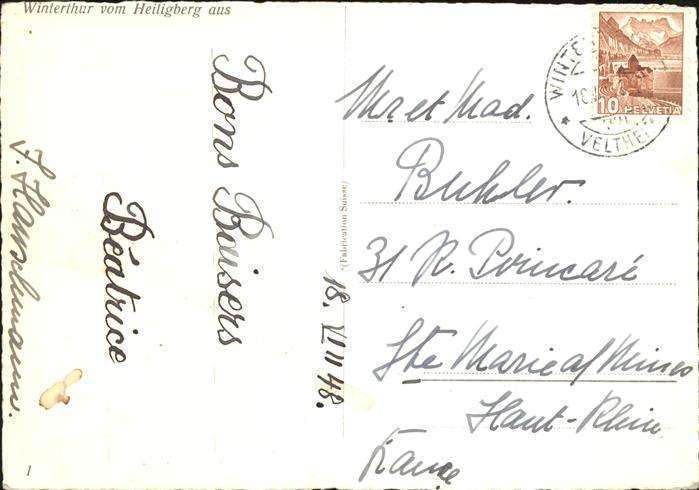 Winterthur vom Heiligberg aus
Bons Baisers
Béatrice
18. VIII 48.
(Fabrication Suisse)
Mr et Mad.
Buhler.
31 R. Poincaré
Ste Marie a/ Mines
Haut-Rhin
France
10 HELVETIA
VELTHEIM
1